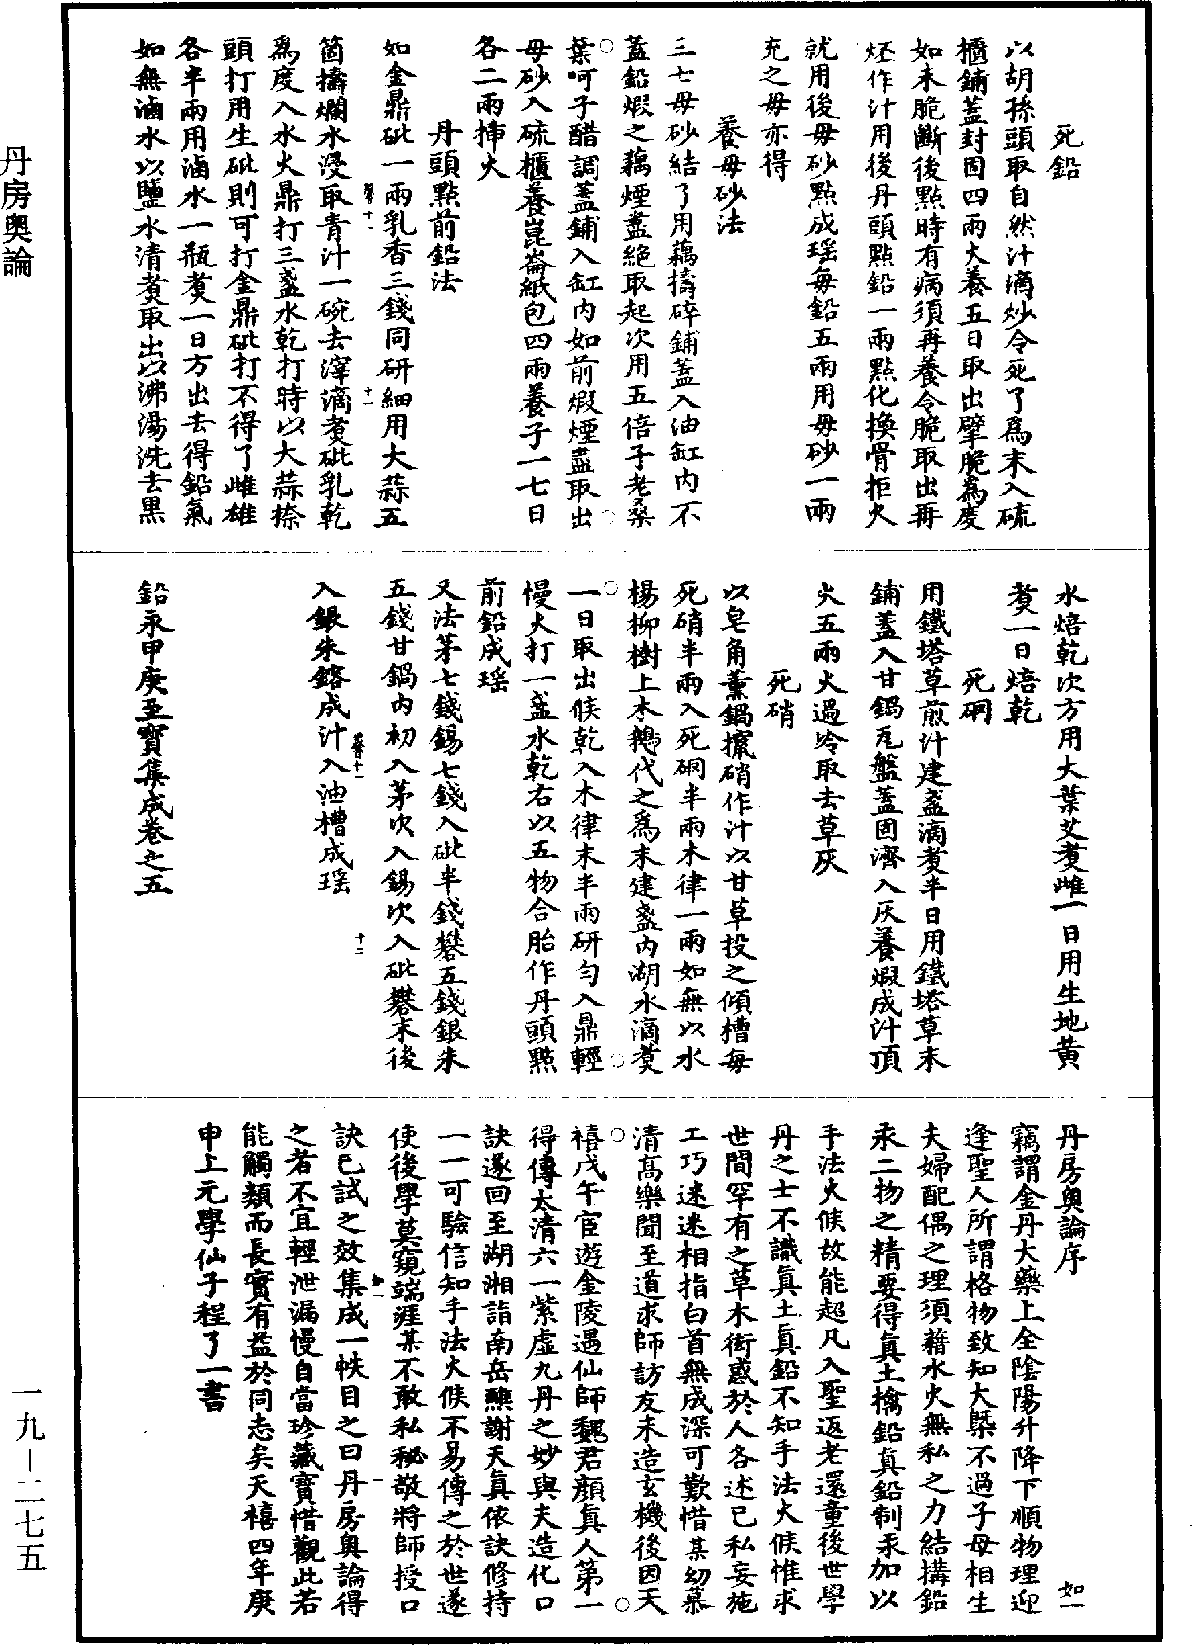 死鉛
以胡孫頭取自然汁滴炒令死了為末入硫
櫃鋪蓋封固四兩火養五日取出擘脆為度
如未脆斷後點時有病須再養令脆取出再
烰作汁用後丹頭點鉛一兩點化換骨拒火
就用後毋砂點成瑶每鉛五兩用毋砂一兩
充之毋亦得
養毋砂法
三七毋砂結了用藕擣碎鋪蓋入油缸內不
蓋鉛煅之藕煙盡絕取起次用五倍子老桑
葉呵子醋調蓋鋪入缸內如前煅煙盡取出
毋砂入硫櫃養崑崙紙包四兩養子一七日
各二兩挿火
丹頭點前鉛法
如金鼎砒一兩乳香三錢同研細用大蒜五
箇擣爛水浸取青汁一碗去滓滴煑砒乳乾
為度入水火鼎打三盞水乾打時以大蒜捺
頭打用生砒則可打金鼎砒打不得了雌雄
各半兩用滷水一瓶煑一日方出去得鉛氣
如無滷水以鹽水清煑取出以沸湯洗去黑
水焙乾次方用大葉艾煑雌一日用生地黄
煑一日焙乾
死硇
用鐵塔草煎汁建盞滴煑半日用鐵塔草末
鋪蓋入甘鍋瓦盤蓋固濟入灰養煅成汁頂
火五兩火過冷取去草灰
死硝
以皂角薰鍋攛硝作汁以甘草投之傾槽每
死硝半兩入死硇半兩木律一兩如無以水
楊柳樹上木鵝代之為末建盞內湖水滴煑
一日取出候乾入木律末半兩研勻入鼎輕
慢火打一盞水乾右以五物合胎作丹頭點
前鉛成瑶
又法茅七錢錫七錢入砒半錢礬五錢銀朱
五錢甘鍋內初入茅次入錫次入砒礬末後
入銀朱鎔成汁入油槽成瑶
鉛汞甲庚至寶集成卷之五
丹房奥論序
如一
竊謂金丹大藥上全陰陽升降下順物理迎
逢聖人所謂格物致知大槩不過子母相生
夫婦配偶之理須藉水火無私之力結搆鉛
汞二物之精要得真土擒鉛真鉛制汞加以
手法火候故能超凡入聖返老還童後世學
丹之士不識真土真鉛不知手法火候惟求
世間罕有之草木衒惑於人各述己私妄施
工巧迷迷相指白首無成深可歎惜某幼慕
清高樂聞至道求師訪友未造玄機後因天
禧戊午宦遊金陵遇仙師魏君顔真人第一
得傳太清六一紫虛九丹之妙與夫造化口
訣遂回至湖湘詣南岳醮謝天真依訣修持
一一可驗信知手法火候不易傳之於世遂
使後學莫窺端涯某不敢私秘敬將師授口
訣已試之效集成一帙目之曰丹房奥論得
之若不宜輕泄漏慢自當珍藏寶惜觀此若
能觸類而長實有益於同志矣天禧四年庚
申上元學仙子程了一書
丹房奥論
一九—二七五